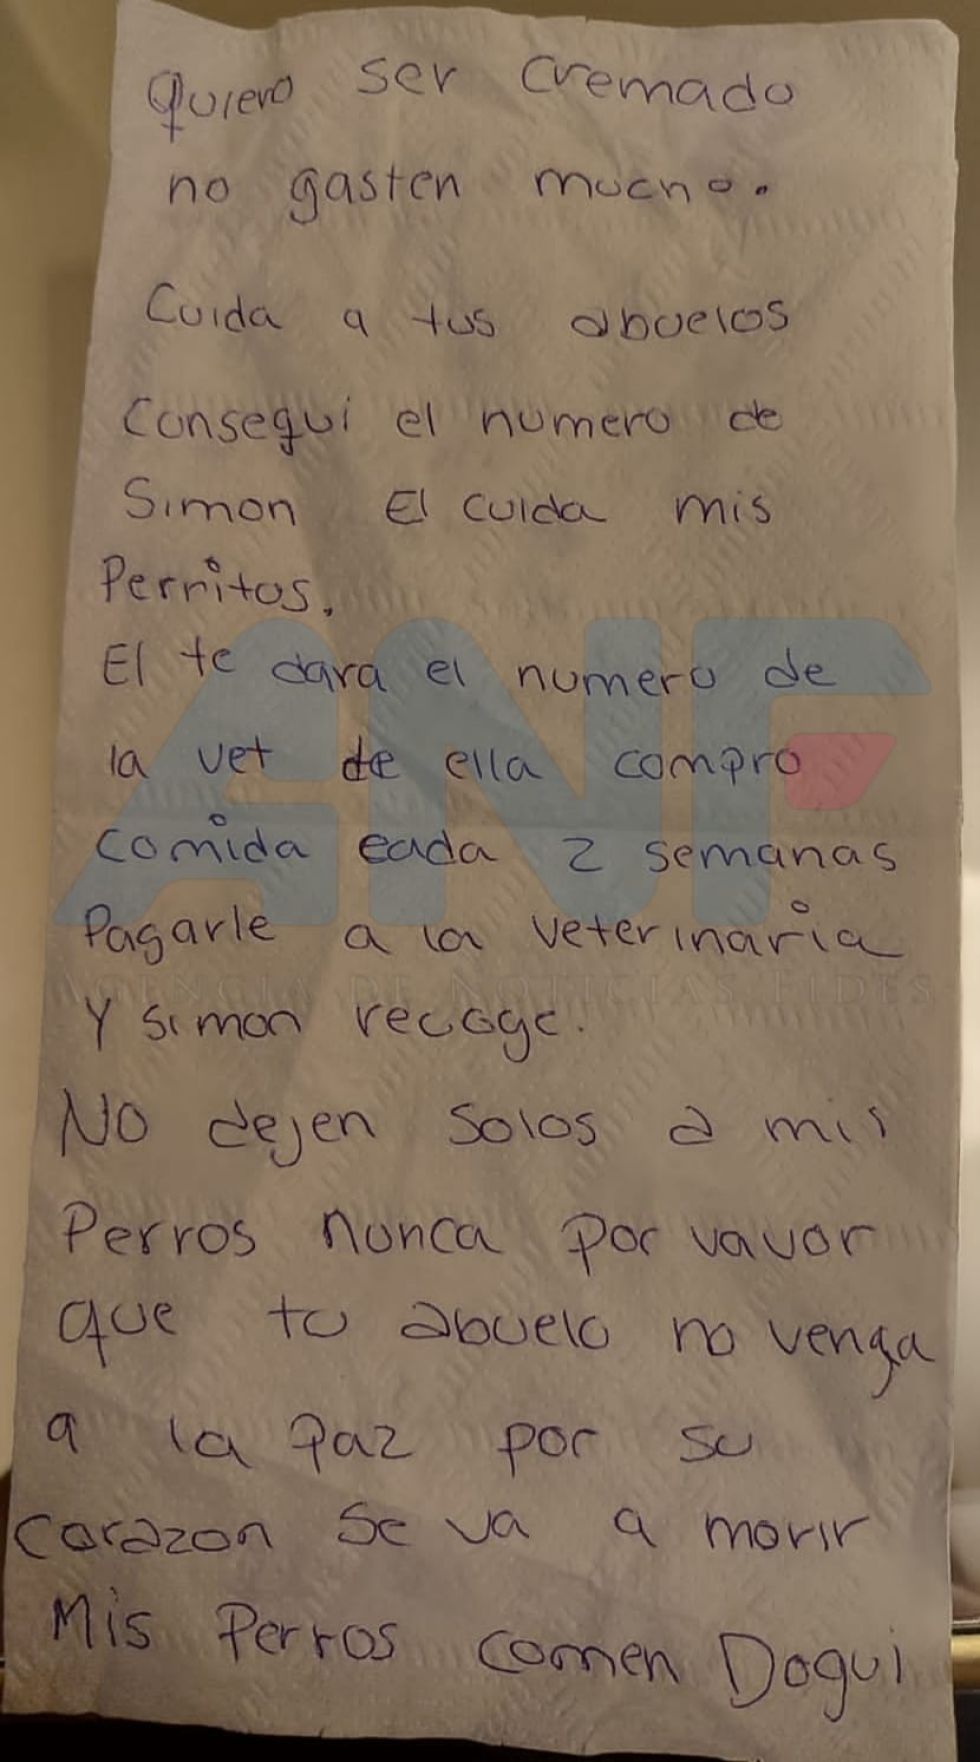 Quiero ser cremado
no gasten mucho.
Cuida a tus abuelos
Consegui el numero de
Simon El cuida mis
Perritos.
El te dara el numero de
la vet de ella compro
comida cada 2 semanas
Pagarle a la veterinaria
Y simon recoge.
No dejen solos a mis
Perros nunca por vavor
que tu abuelo no venga
a la Paz por su
corazon se va a morir
Mis Perros comen Dogui
ANF
AGENCIA DE NOTICIAS FIDES